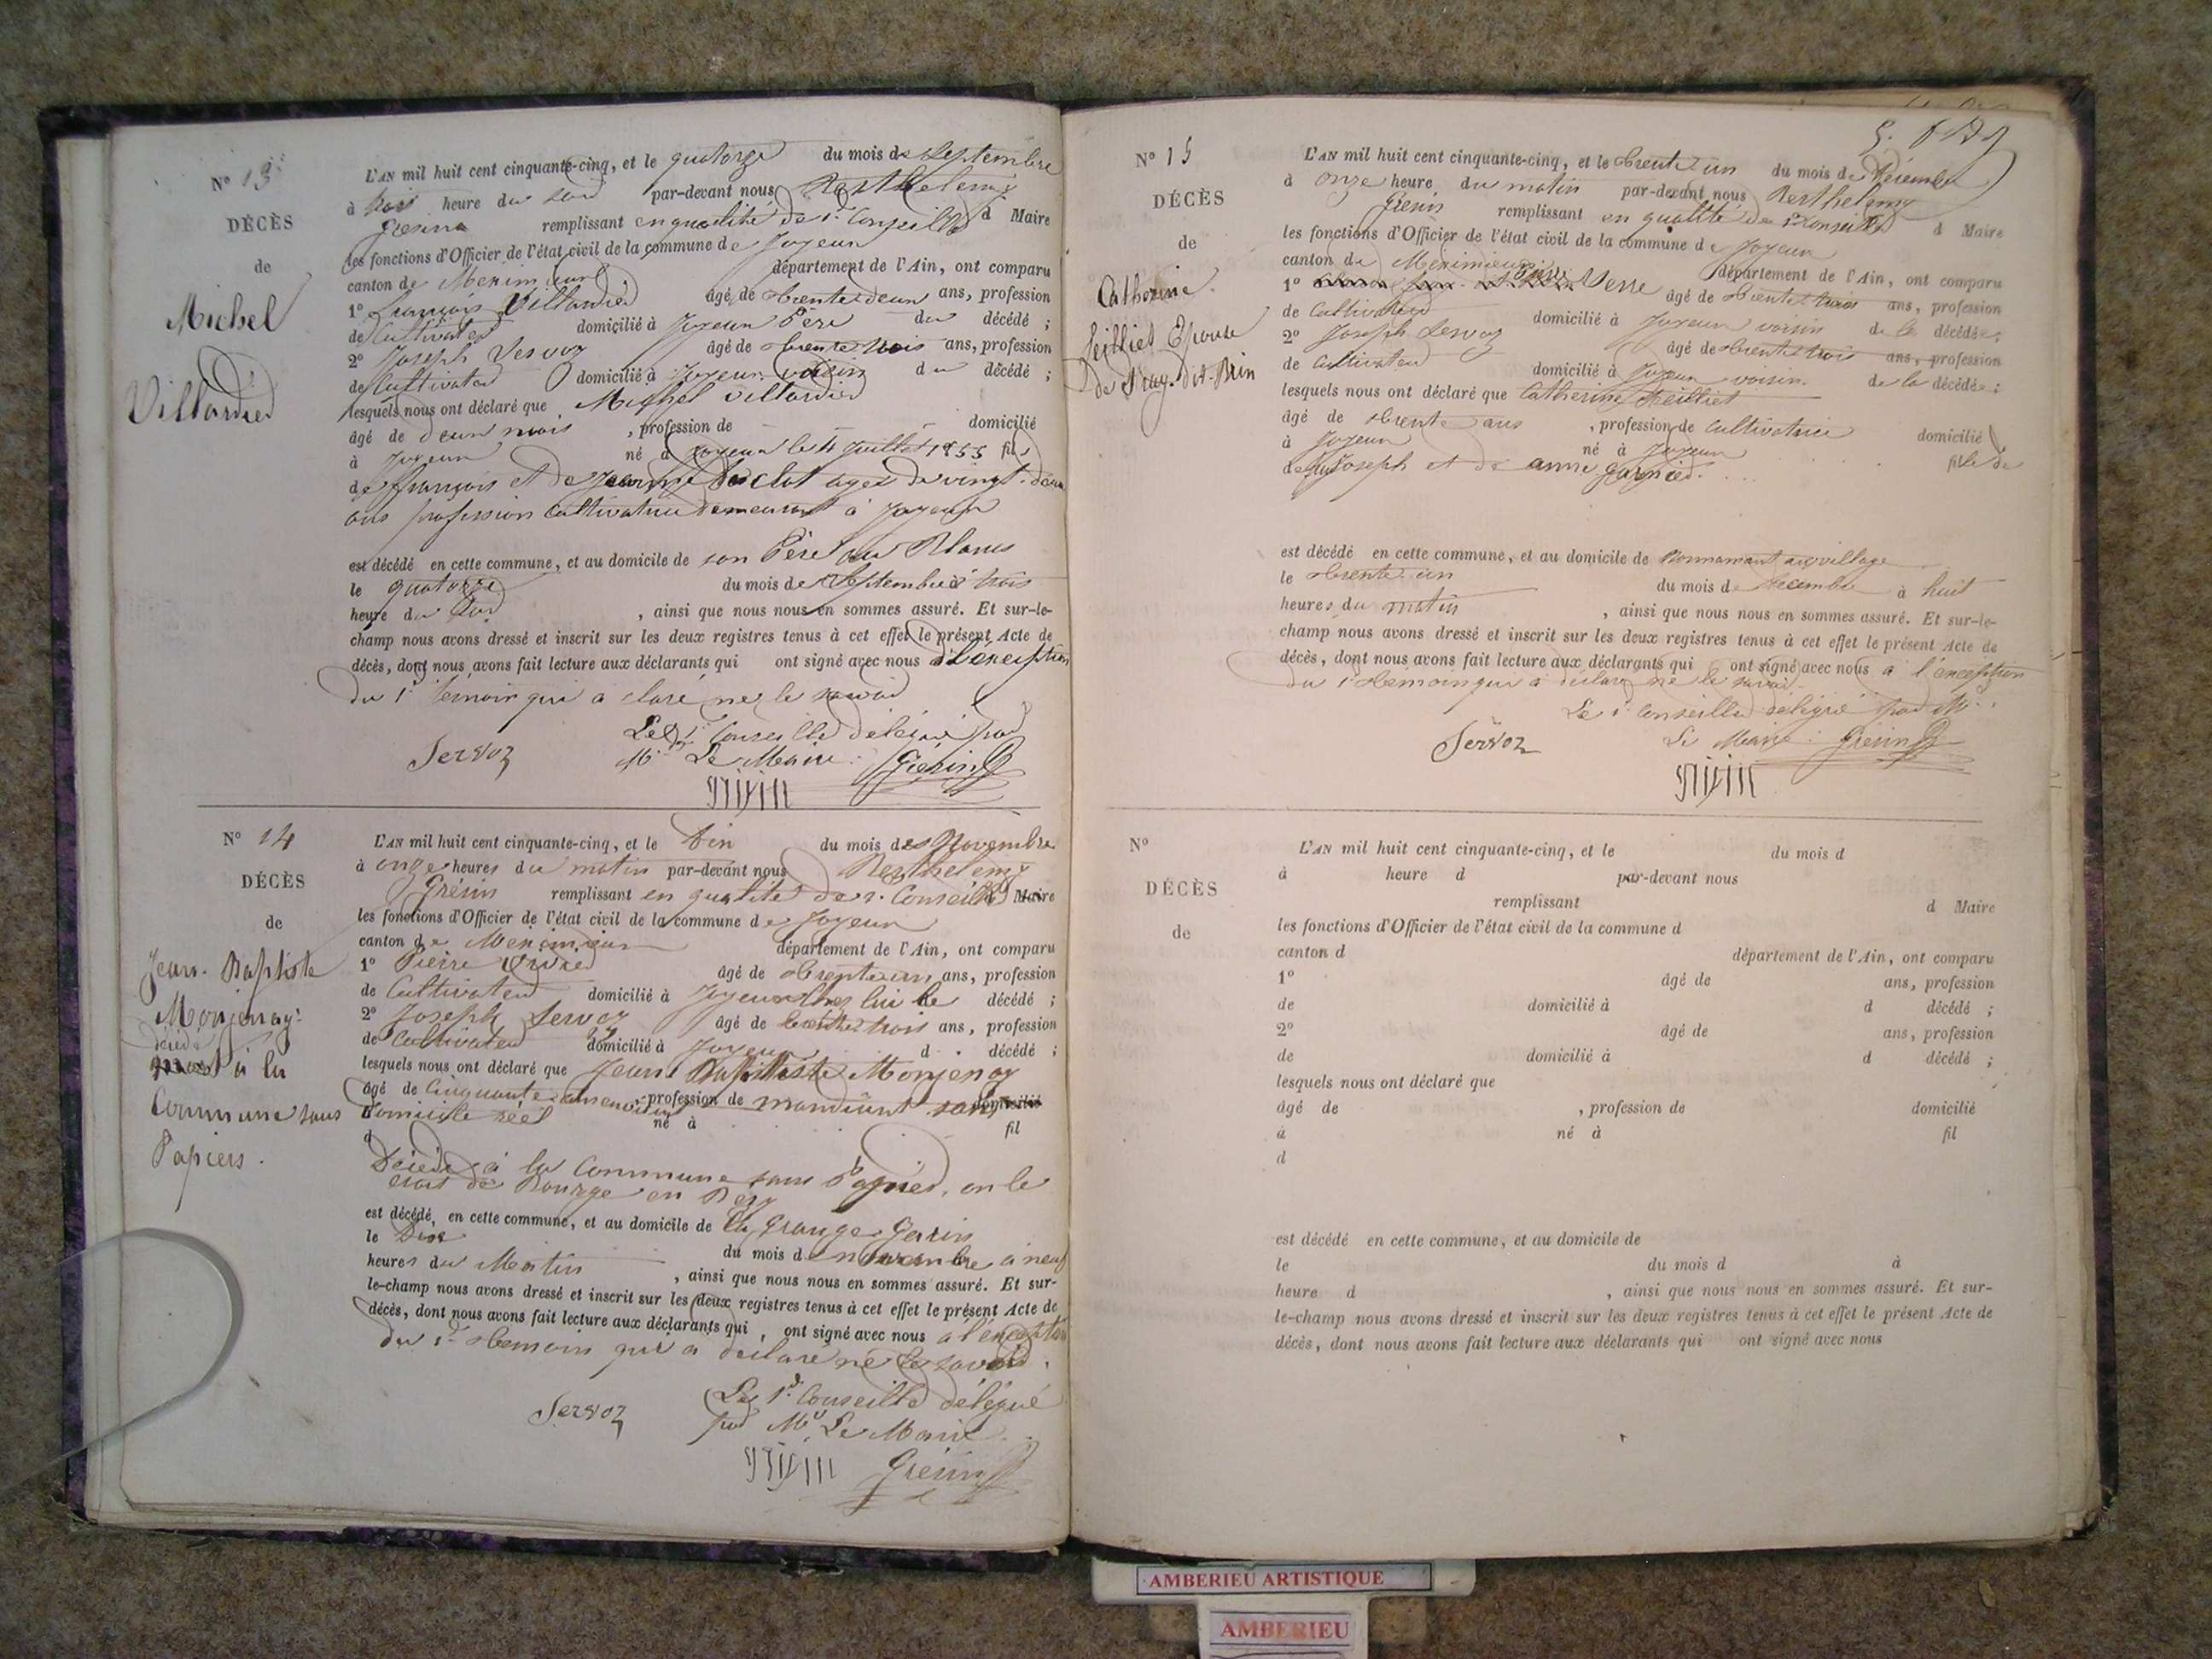 N° 13
DÉCÈS
de
Michel
Villardier
L'AN mil huit cent cinquante-cinq, et le quatorze du mois de Septembre
à trois heure du soir par-devant nous Berthelemy
Grésin remplissant en qualité de 1er Conseiller d Maire
les fonctions d'Officier de l'état civil de la commune de Joyeux
canton de Meximieux département de l'Ain, ont comparu
1° François Villardier âgé de trente deux ans, profession
de Cultivateur domicilié à Joyeux Père du décédé ;
2° Joseph Servoz âgé de trente trois ans, profession
de Cultivateur domicilié à Joyeux voisin du décédé ;
lesquels nous ont déclaré que Michel Villardier
âgé de deux mois , profession de domicilié
à Joyeux né à Joyeux le 4 Juillet 1855 fils
de François et de Jeanne Duclot agée de vingt-deux
ans profession Cultivatrice demeurant à Joyeux
est décédé en cette commune, et au domicile de son Père au
le quatorze du mois de Septembre à trois
heure du soir , ainsi que nous nous en sommes assuré. Et sur-le-
champ nous avons dressé et inscrit sur les deux registres tenus à cet effet le présent Acte de
décès, dont nous avons fait lecture aux déclarants qui ont signé avec nous à l'exception
du 1er témoin qui a claré ne le savoir
Le 1er Conseiller délégué par
Servoz Mr Le Maire Grésin
N° 14
DÉCÈS
de
Jean-Baptiste
Monjenay
décédé
à la
Commune sans
Papiers.
L'AN mil huit cent cinquante-cinq, et le Dix du mois de Novembre
à onze heures du matin par-devant nous Berthelemy
Grésin remplissant en qualité de 1er Conseiller d Maire
les fonctions d'Officier de l'état civil de la commune de Joyeux
canton de Meximieux département de l'Ain, ont comparu
1° Pierre âgé de trente un ans, profession
de Cultivateur domicilié à Joyeux chez lui le décédé ;
2° Joseph Servoz âgé de trente trois ans, profession
de Cultivateur domicilié à Joyeux d décédé ;
lesquels nous ont déclaré que Jean Baptiste Monjenay
âgé de Cinquante ans environ , profession de mendiant sans domicilié
Domicile réel né à fil
d
Décédé à la Commune sans Papiers, on le
crois de Bourge en Bres
est décédé en cette commune, et au domicile de la Grange Garin
le Dix du mois de novembre à neuf
heures du Matin , ainsi que nous nous en sommes assuré. Et sur-
le-champ nous avons dressé et inscrit sur les deux registres tenus à cet effet le présent Acte de
décès, dont nous avons fait lecture aux déclarants qui , ont signé avec nous à l'exception
du 1er témoin qui a déclaré ne le savoir.
Le 1er Conseiller délégué
Servoz par Mr Le Maire
Grésin
N° 15
DÉCÈS
de
Catherine
Seilliet Epouse
de
L'AN mil huit cent cinquante-cinq, et le trente un du mois de Décembre
à onze heure du matin par-devant nous Berthelemy
Grésin remplissant en qualité de 1er Conseiller d Maire
les fonctions d'Officier de l'état civil de la commune de Joyeux
canton de Meximieux département de l'Ain, ont comparu
1° Verre âgé de trente trois ans, profession
de Cultivateur domicilié à Joyeux voisin de la décédée ;
2° Joseph Servoz âgé de trente trois ans, profession
de Cultivateur domicilié à Joyeux voisin de la décédée ;
lesquels nous ont déclaré que Catherine Seilliet
âgé de trente ans , profession de Cultivatrice domicilié
à Joyeux né à Joyeux fille de
de feu Joseph et de anne Garnier.
est décédé en cette commune, et au domicile de Monnamant au village
le trente un du mois de Décembre à huit
heures du matin , ainsi que nous nous en sommes assuré. Et sur-le-
champ nous avons dressé et inscrit sur les deux registres tenus à cet effet le présent Acte de
décès, dont nous avons fait lecture aux déclarants qui ont signé avec nous à l'exception
du 1er témoin qui a déclaré ne le savoir
Le 1er Conseiller délégué par Mr
Servoz Le Maire Grésin
N°
DÉCÈS
de
L'AN mil huit cent cinquante-cinq, et le du mois d
à heure d par-devant nous
remplissant d Maire
les fonctions d'Officier de l'état civil de la commune d
canton d département de l'Ain, ont comparu
1° âgé de ans, profession
de domicilié à d décédé ;
2° âgé de ans, profession
de domicilié à d décédé ;
lesquels nous ont déclaré que
âgé de , profession de domicilié
à né à fil
d
est décédé en cette commune, et au domicile de
le du mois d à
heure d , ainsi que nous nous en sommes assuré. Et sur-
le-champ nous avons dressé et inscrit sur les deux registres tenus à cet effet le présent Acte de
décès, dont nous avons fait lecture aux déclarants qui ont signé avec nous
AMBERIEU ARTISTIQUE
AMBERIEU